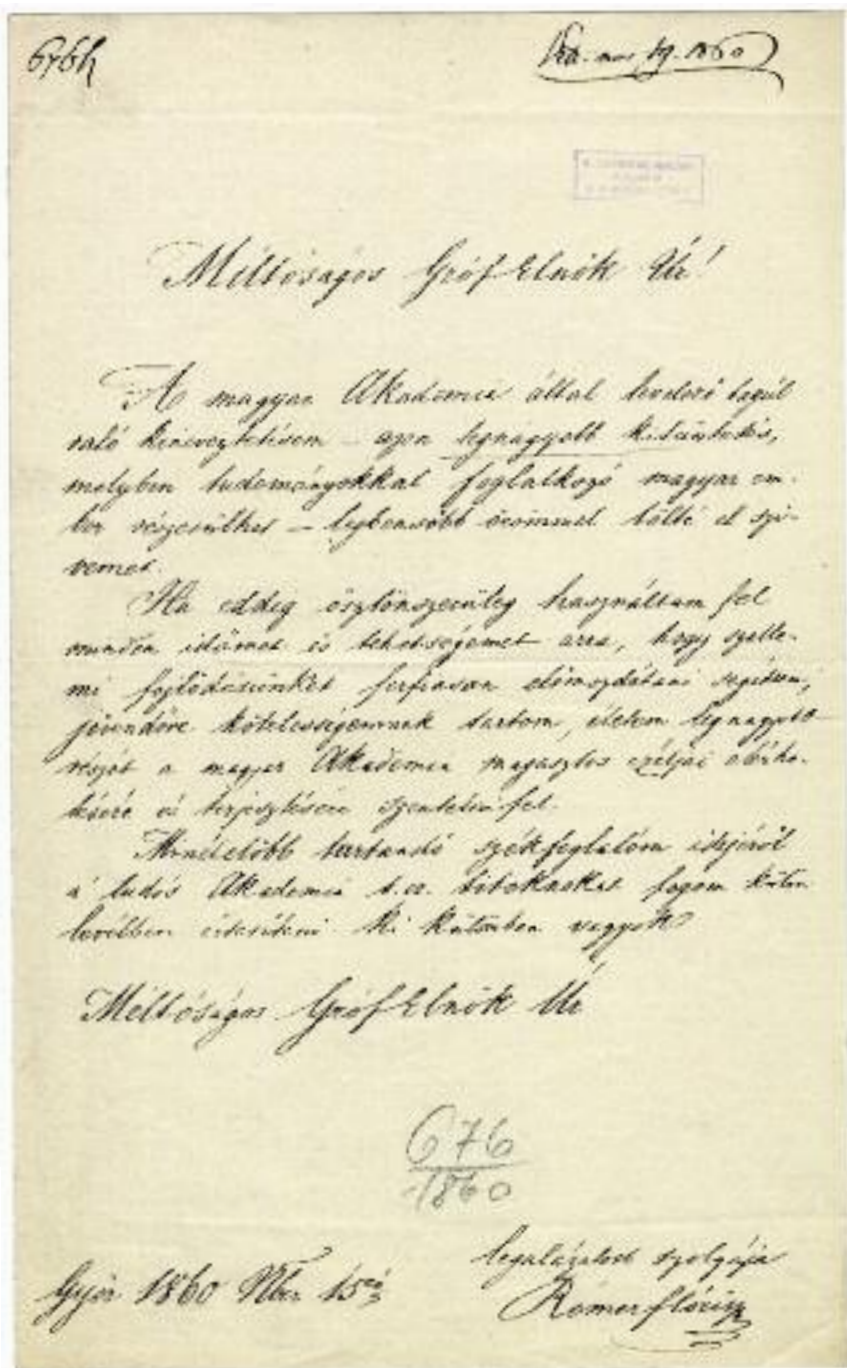 676h
nov 19. 1860
Méltóságos Gróf Elnök Úr!
A magyar Akademia által levelező tagúl
való kineveztetésem – azon legnagyobb kitüntetés,
melyben tudományokkal foglalkozó magyar em-
ber részesülhet – legbensőbb örömmel tölté el szi-
vemet.
Ha eddig ösztönszerüleg használtam fel
minden időmet és tehetségemet arra, hogy szelle-
mi fejlődésünket előmozdítani segítsem,
jövendőre kötelességemnek tartom, életem legnagyobb
részét a magyar Akademia magasztos czéljai
és terjesztésére szentelni fel.
Minélelőbb tartandó székfoglalóm idejéről
a' tudós Akademia t. cz. titoknokát fogom külön
levélben értesíteni. Ki vagyok
Méltóságos Gróf Elnök Úr
676
1860
legalázatosb szolgája
Győr 1860 Nber 15én
Rómer Flóris